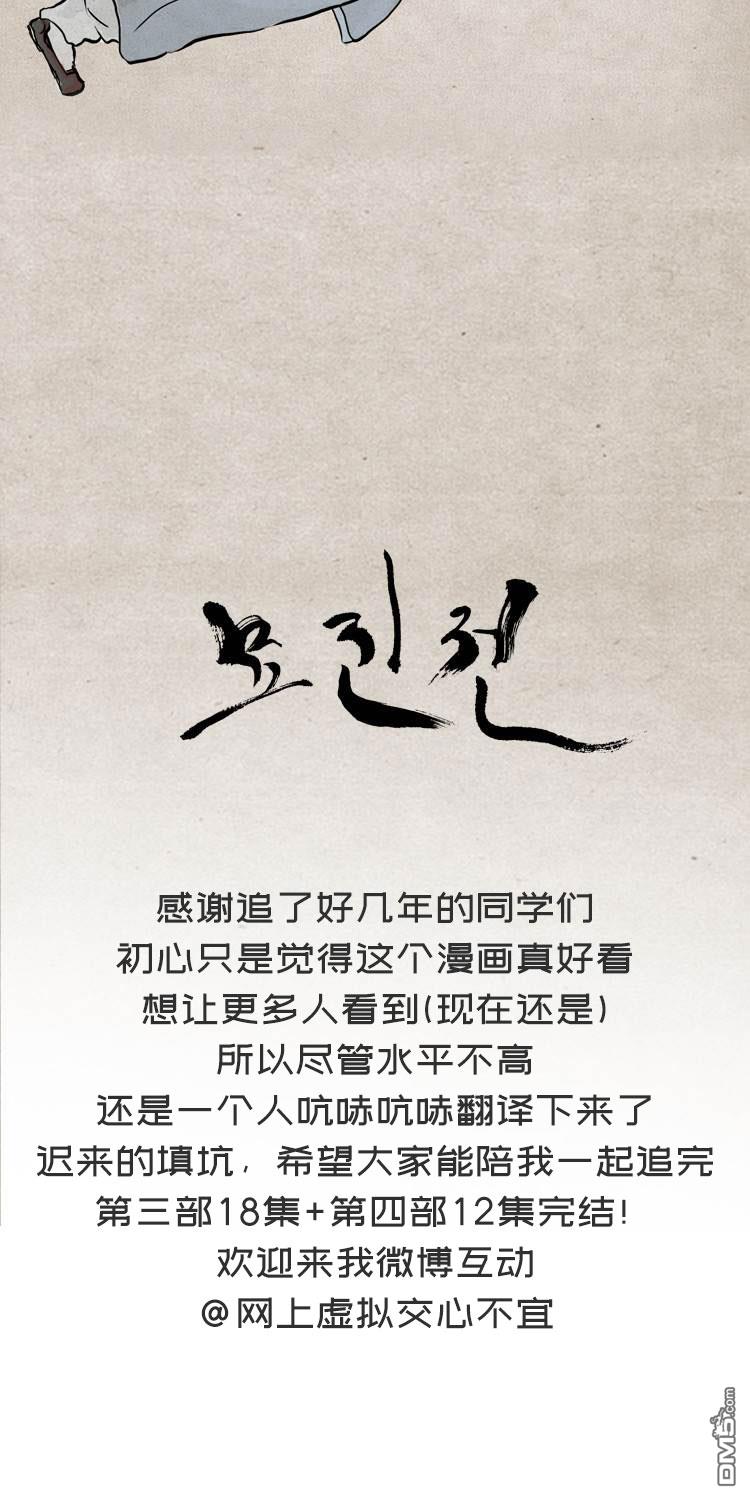 묘진전
感谢追了好几年的同学们
初心只是觉得这个漫画真好看
想让更多人看到(现在还是)
所以尽管水平不高
还是一个人吭哧吭哧翻译下来了
迟来的填坑，希望大家能陪我一起追完
第三部18集+第四部12集完结!
欢迎来我微博互动
@网上虚拟交心不宜
DM5.com